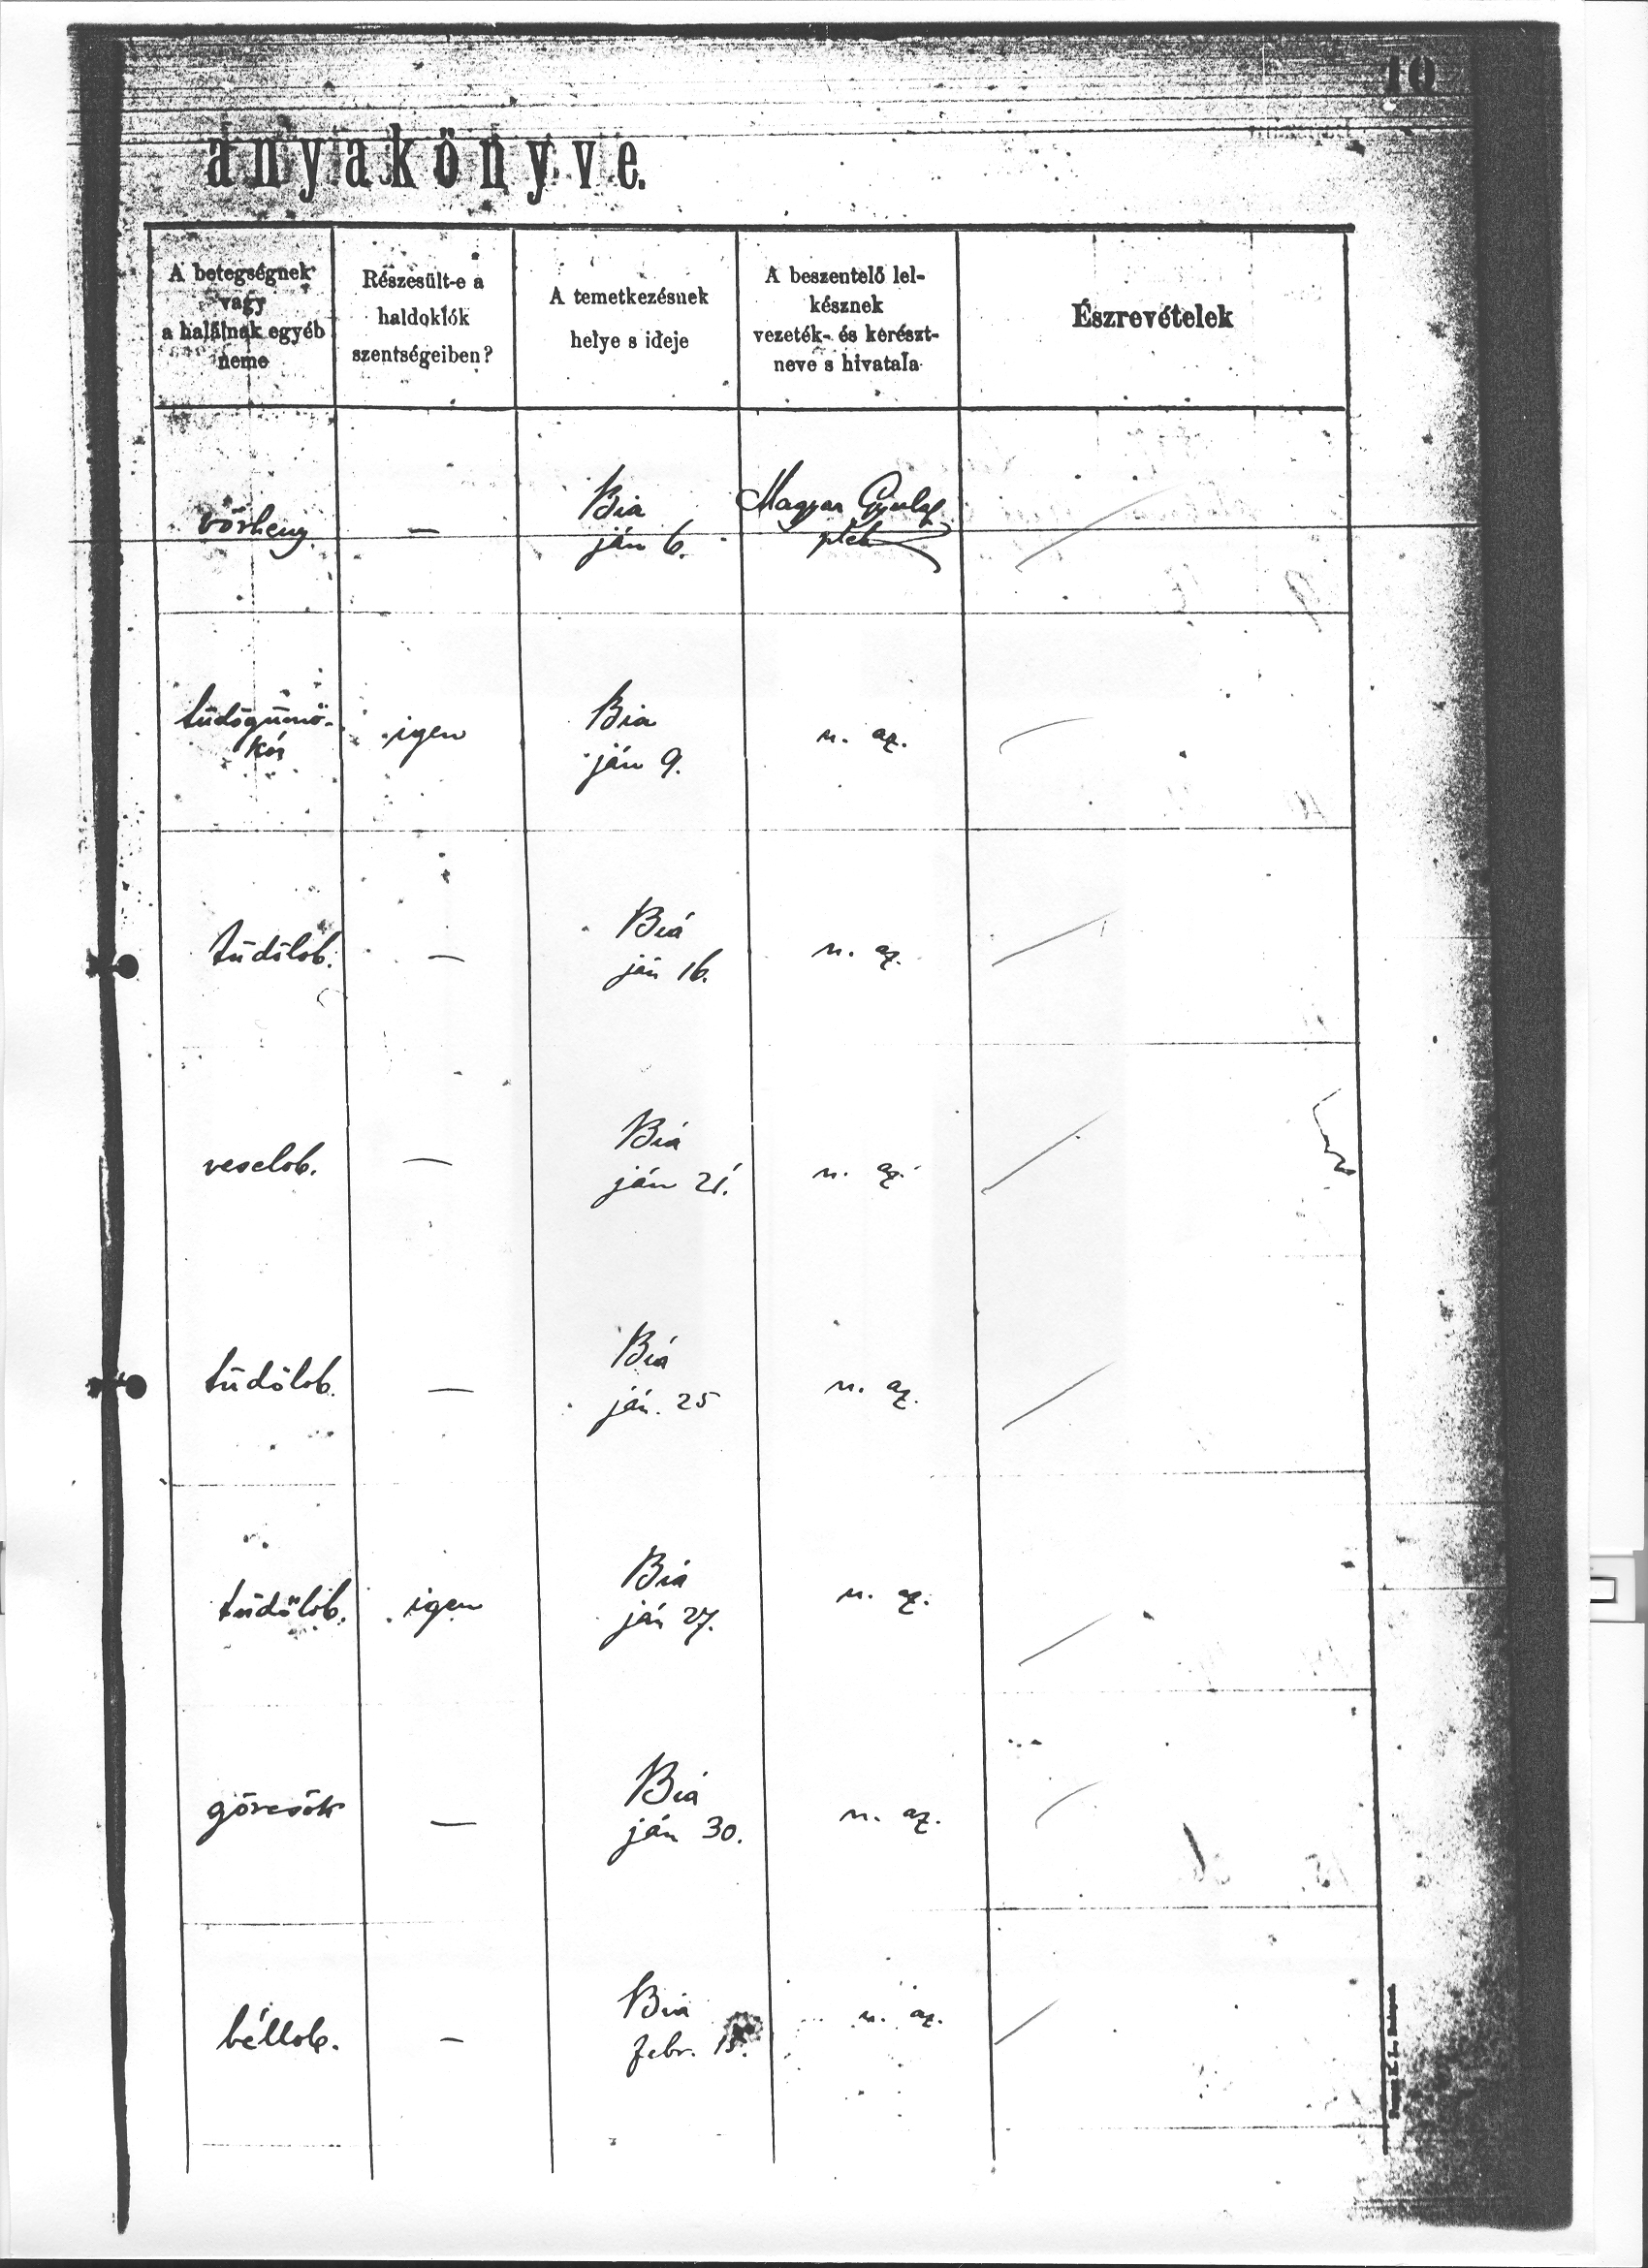 10
anyakönyve.
A betegségnek
vagy
a halálnak egyéb
neme
Részesült-e a
haldoklók
szentségeiben?
A temetkezésnek
helye s ideje
A beszentelő lel-
késznek
vezeték- és kereszt-
neve s hivatala
Észrevételek
vörheny.
—
Bia
ján 6.
Magyar Gyula
pléb
tüdőgümő-
kór
igen
Bia
ján 9.
u. az.
tüdőlob.
—
Biá
ján 16.
u. az.
veselob.
—
Biá
ján 21.
u. az.
tüdőlob.
—
Biá
ján. 25
u. az.
tüdőlob.
igen
Biá
ján 27.
u. az.
görcsök
—
Biá
ján 30.
u. az.
béllob.
—
Bia
febr. 15.
u. az.